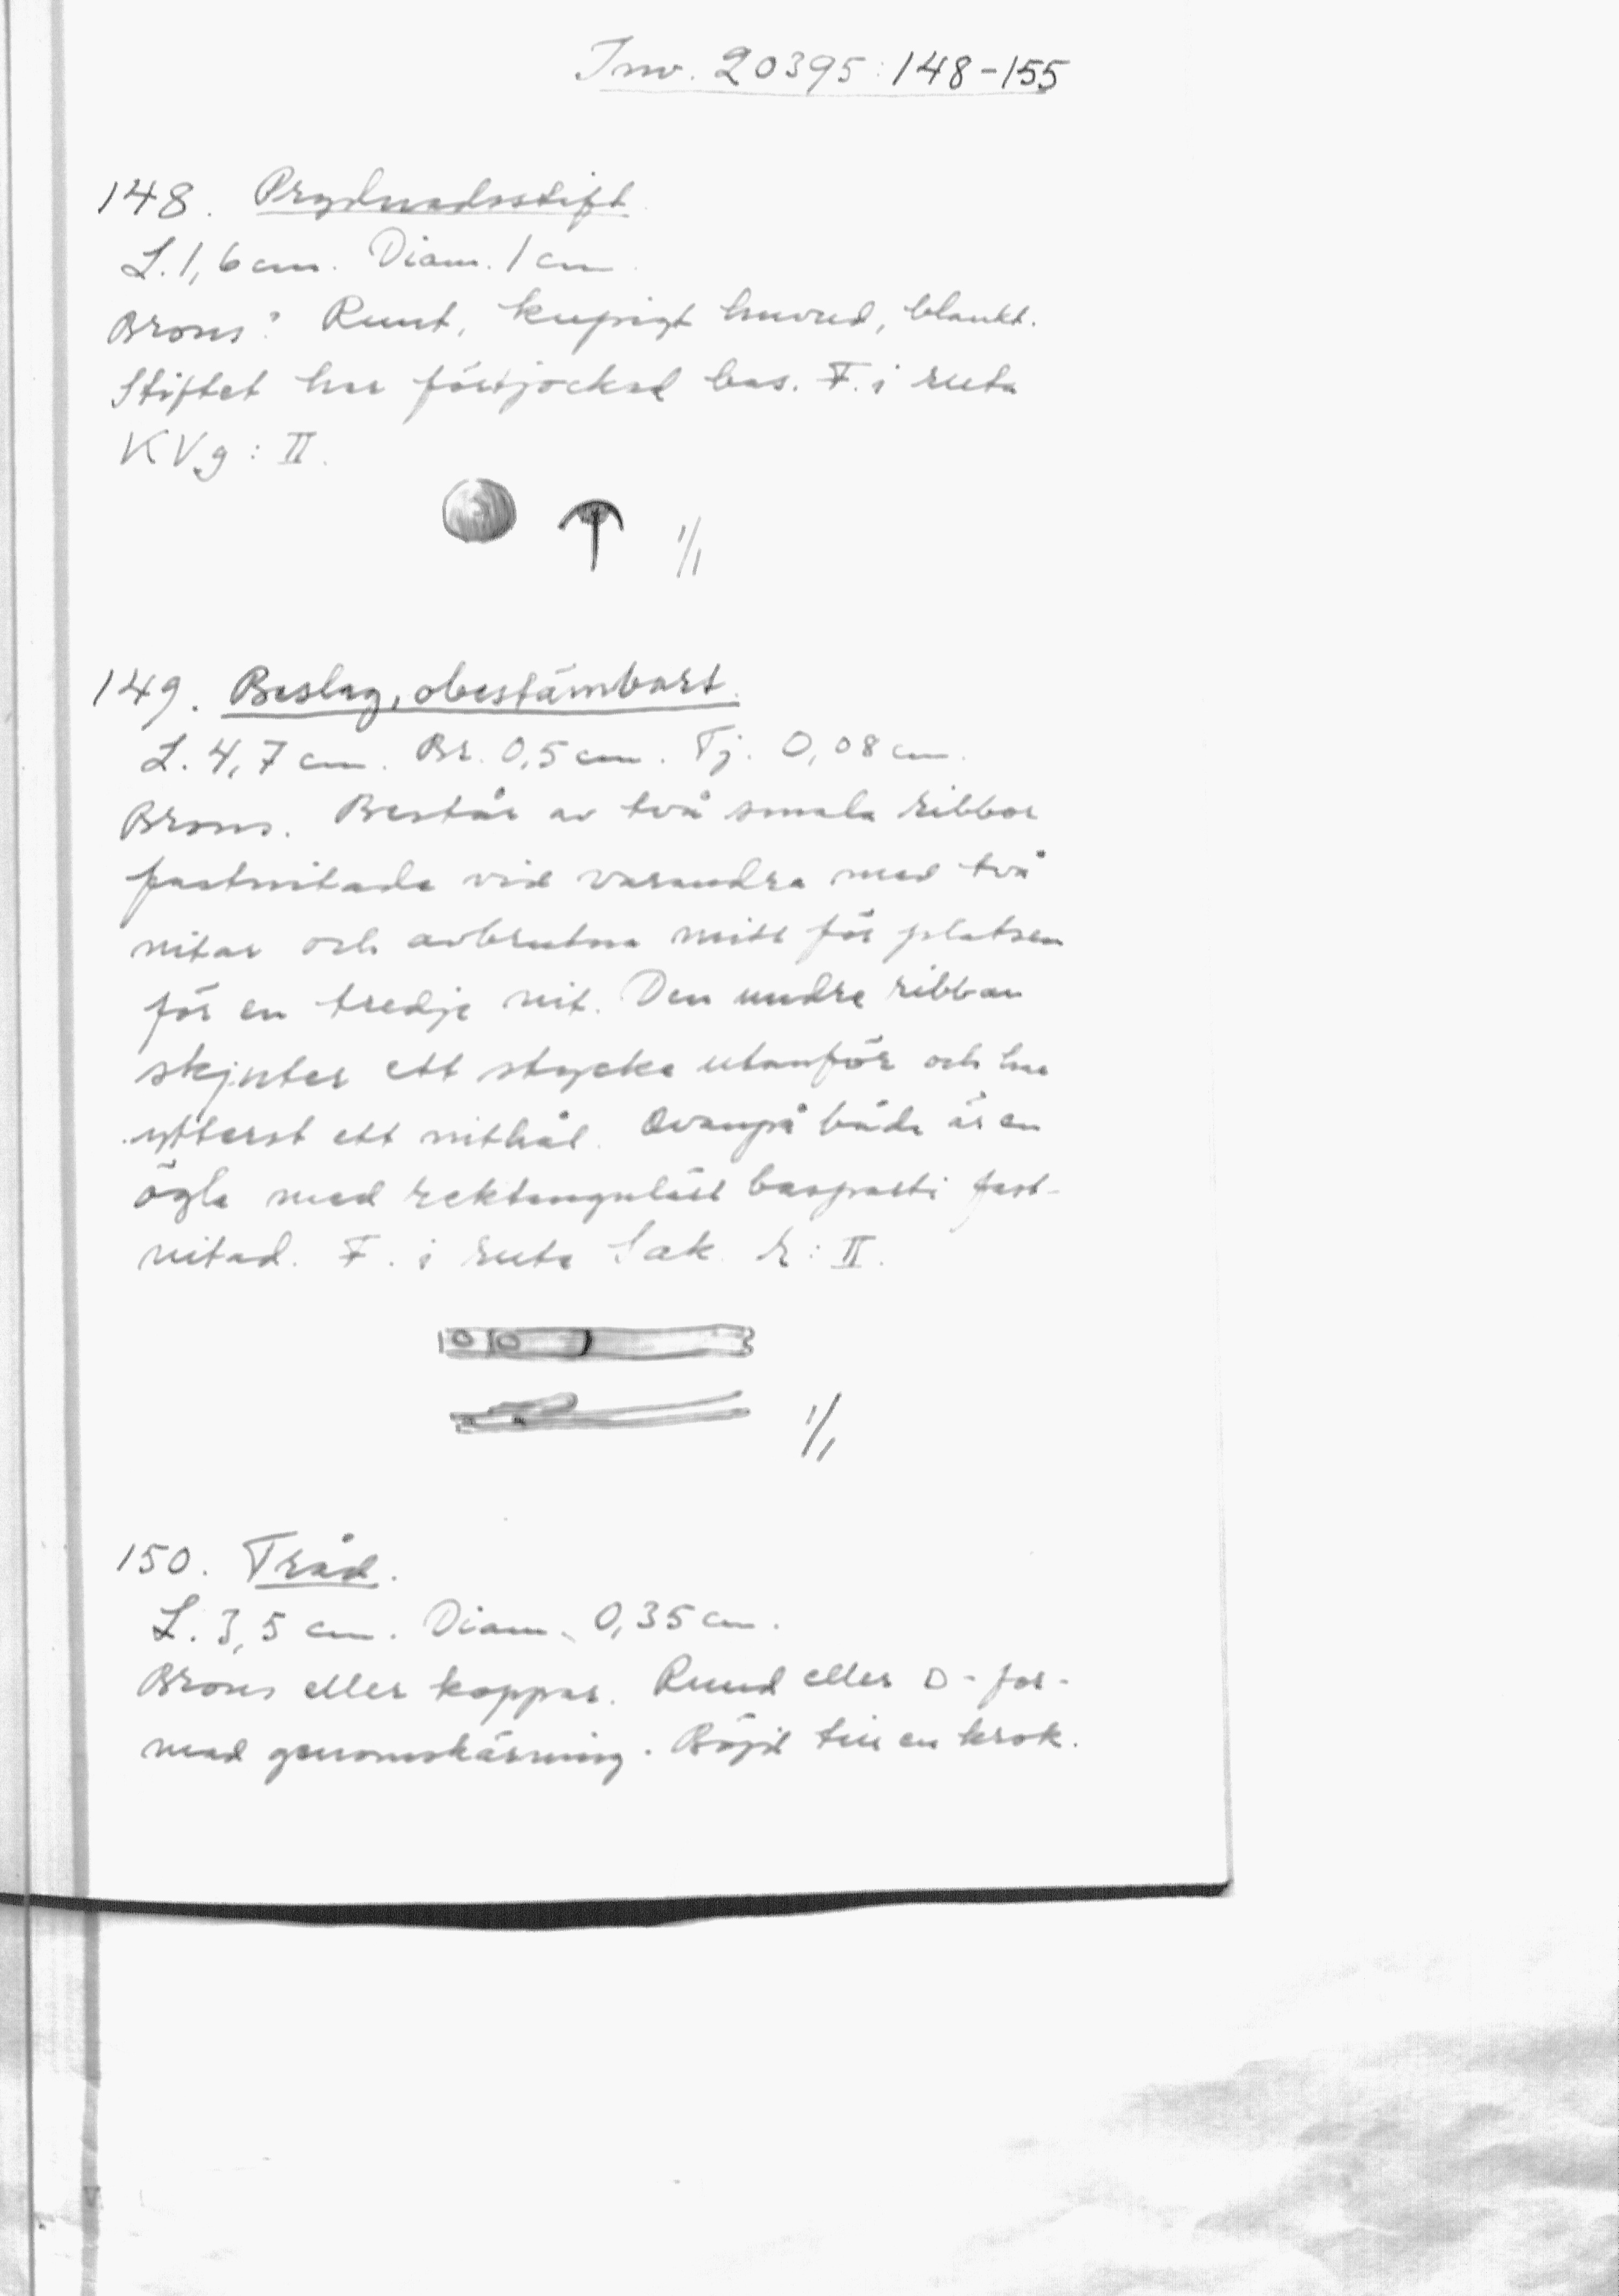 Inv. 20395:148-155
148. Prydnadsstift
L. 1,6 cm. Diam. 1 cm.
Brons? Runt, kupigt huvud, blankt.
Stiftet har förtjockad bas. F. i ruta
KVg: II.
1/1
149. Beslag, obestämbart.
L. 4,7 cm. Br. 0,5 cm. Tj. 0,08 cm.
Brons. Består av två smala ribbor
fastnitade vid varandra med två
nitar och avbrutna mitt för platsen
för en tredje nit. Den undre ribban
skjuter ett stycke utanför och har
ytterst ett nithål. Ovanpå båda är en
ögla med rektangulärt basparti fast-
nitad. F. i ruta Sak. r: II.
1/1
150. Tråd.
L. 3,5 cm. Diam. 0,35 cm.
Brons eller koppar. Rund eller D-for-
mad genomskärning. Böjd till en krok.